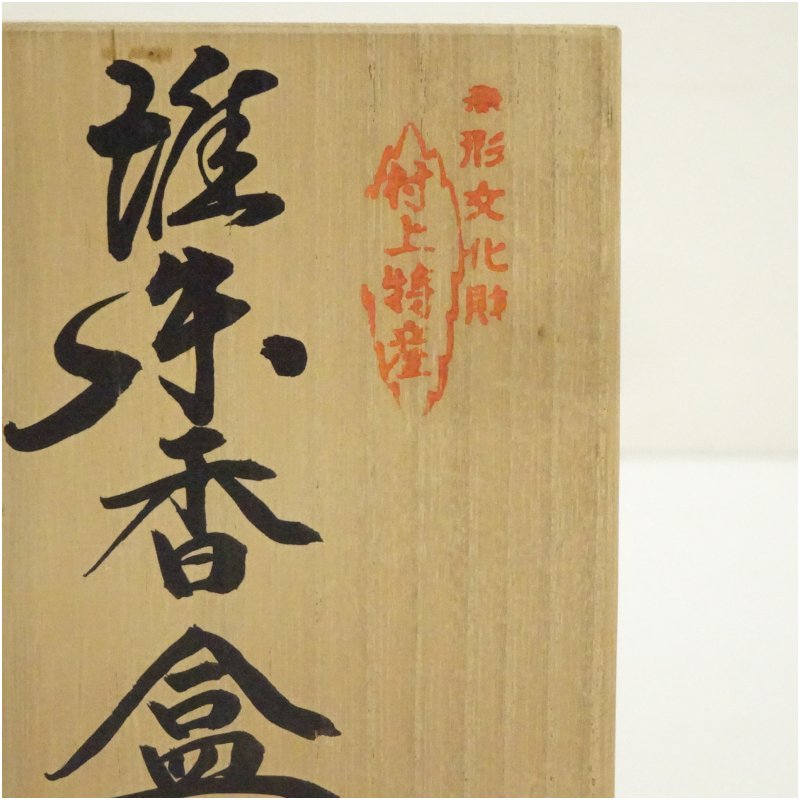 無形文化財
村上特産
堆朱香盒